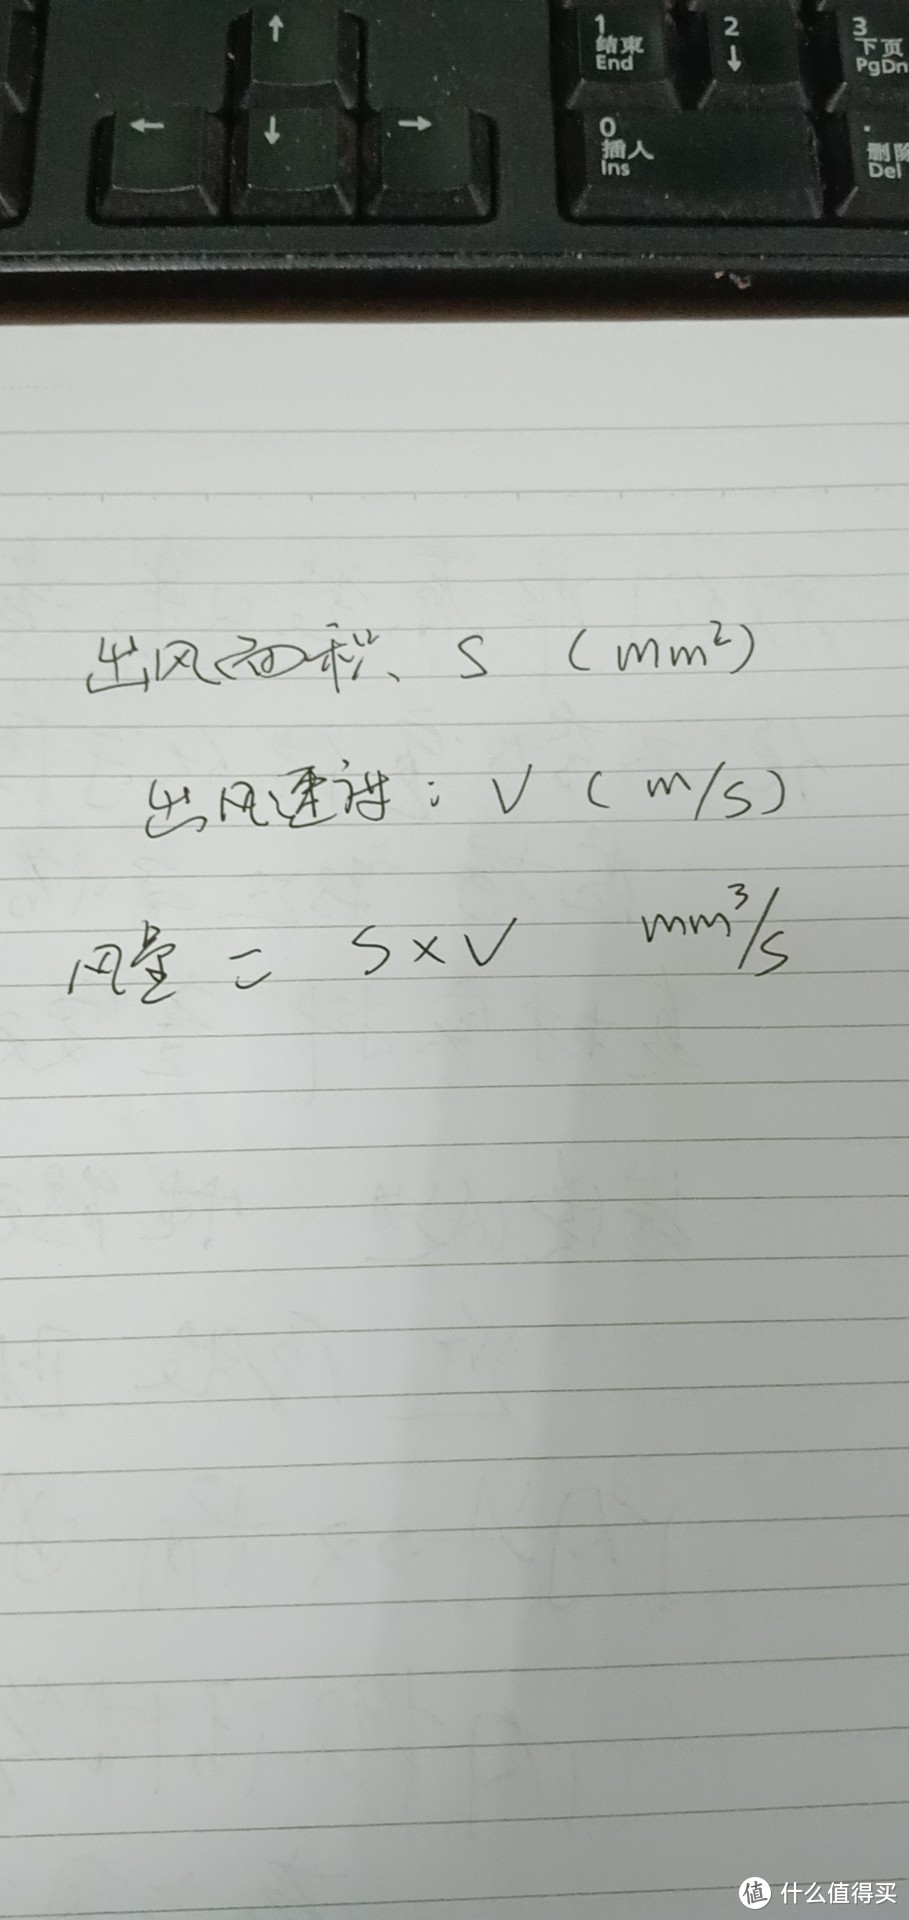 ↑
1
结束
End
2
↓
3
下页
PgDn
←
↓
→
0
插入
Ins
.
删除
Del
出风面积、S (mm²)
出风速 : V (m/s)
风量 = S×V mm³/s
值 什么值得买